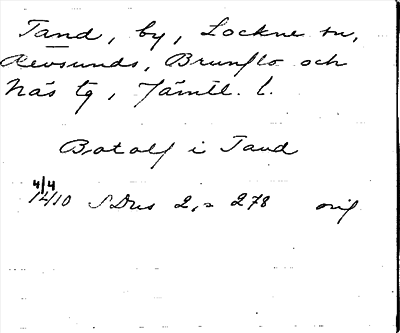 Tand, by, Lockne sn,
Revsunds, Brunflo och
Näs tg, Jämtl. l.
Botolf i Tand
4/4
1410 SDns 2, s 278 orig